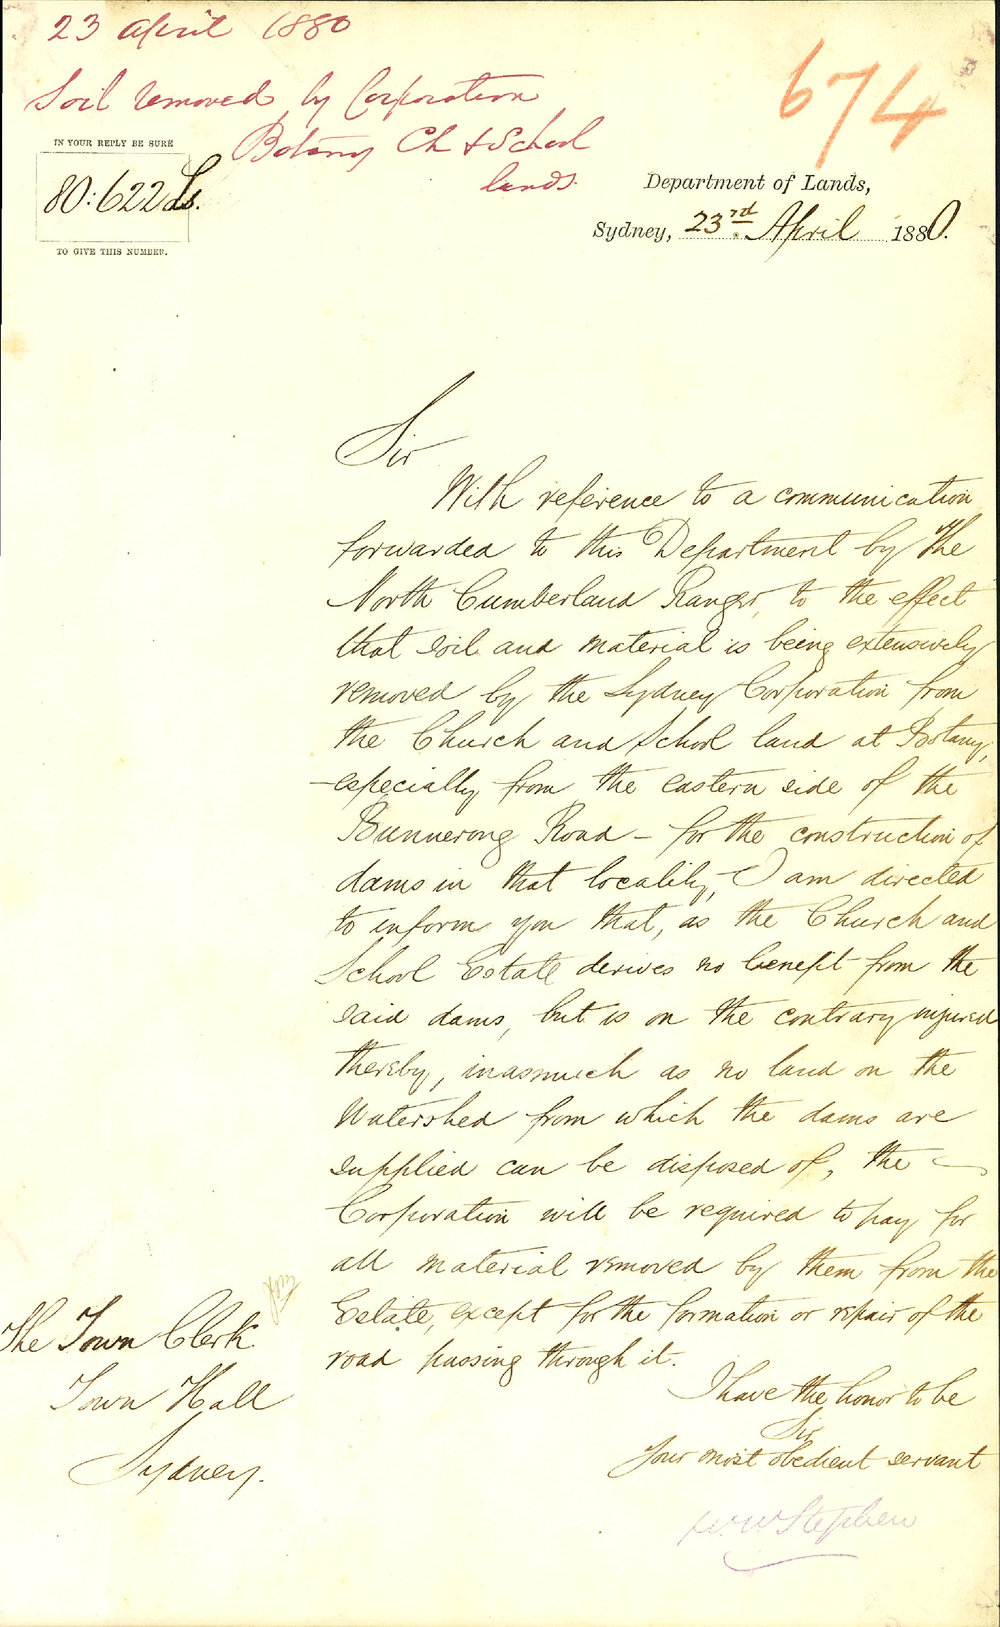 23 April 1880
Soil removed by Corporation
Botany Ch & School
lands.
674
IN YOUR REPLY BE SURE
80:622 Ds.
TO GIVE THIS NUMBER.
Department of Lands,
Sydney, 23rd April 1880.
Sir
With reference to a communication
forwarded to this Department by the
North Cumberland Ranger, to the effect
that soil and material is being extensively
removed by the Sydney Corporation from
the Church and School land at Botany,
especially from the eastern side of the
Bunnerong Road - for the construction of
dams in that locality, I am directed
to inform you that, as the Church and
School Estate derives no benefit from the
said dams, but is on the contrary injured
thereby, inasmuch as no land on the
Watershed from which the dams are
supplied can be disposed of, the
Corporation will be required to pay for
all material removed by them from the
Estate, except for the formation or repair of the
road passing through it.
I have the honor to be
Sir
Your most obedient servant
W.W. Stephen
The Town Clerk
Town Hall
Sydney.